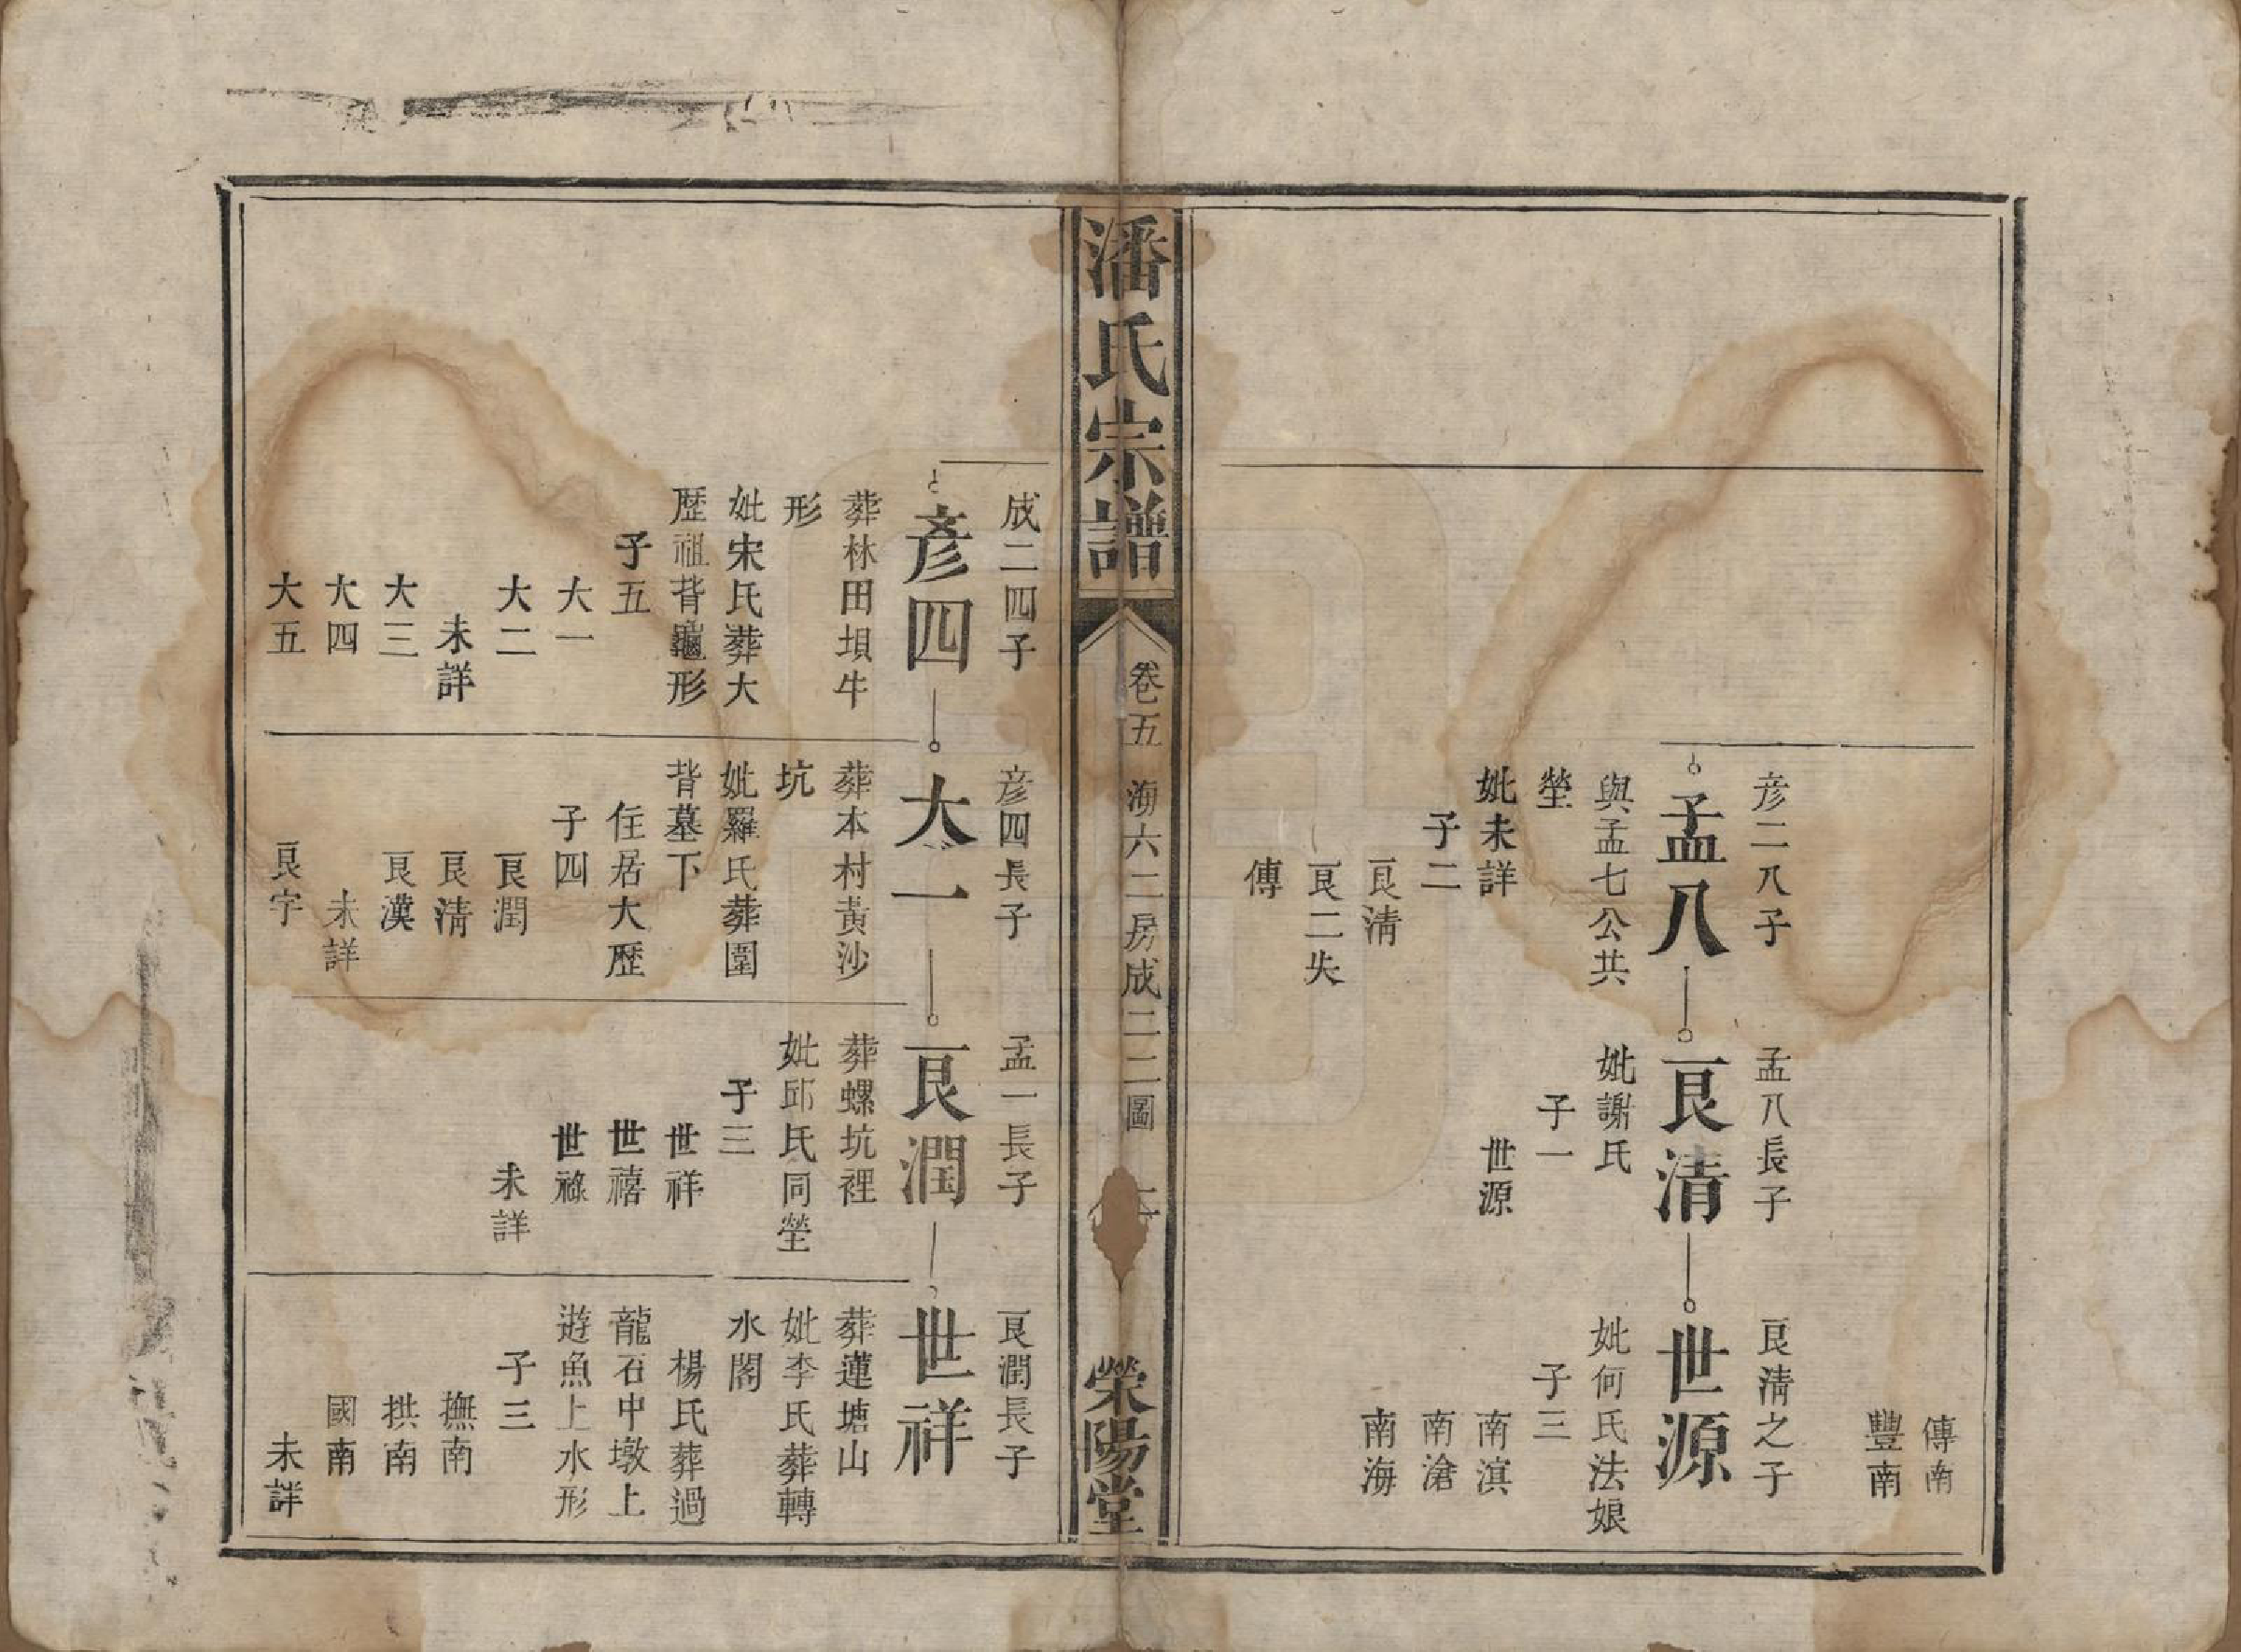 傳南
豐南
彥二八子
孟八
與孟七公共
塋
妣未詳
子二
艮淸
艮二失
傳
孟八長子
艮清
妣謝氏
子一
世源
艮淸之子
世源
妣何氏法娘
子三
南滨
南滄
南海
潘氏宗譜
卷五
海六二房成二二圖
榮陽堂
成二四子
彥四
葬林田垻牛
形
妣宋氏葬大
歷祖背龜形
子五
大一
大二
未詳
大三
大四
大五
彥四長子
大一
葬本村黃沙
坑
妣羅氏葬圍
背墓下
住居大歷
子四
艮潤
艮淸
艮漢
未詳
艮字
孟一長子
艮潤
葬螺坑裡
妣邱氏同塋
子三
世祥
世禧
世祿
未詳
艮潤長子
世祥
葬蓮塘山
妣李氏葬轉
水閣
楊氏葬過
龍石中墩上
遊魚上水形
子三
撫南
拱南
國南
未詳